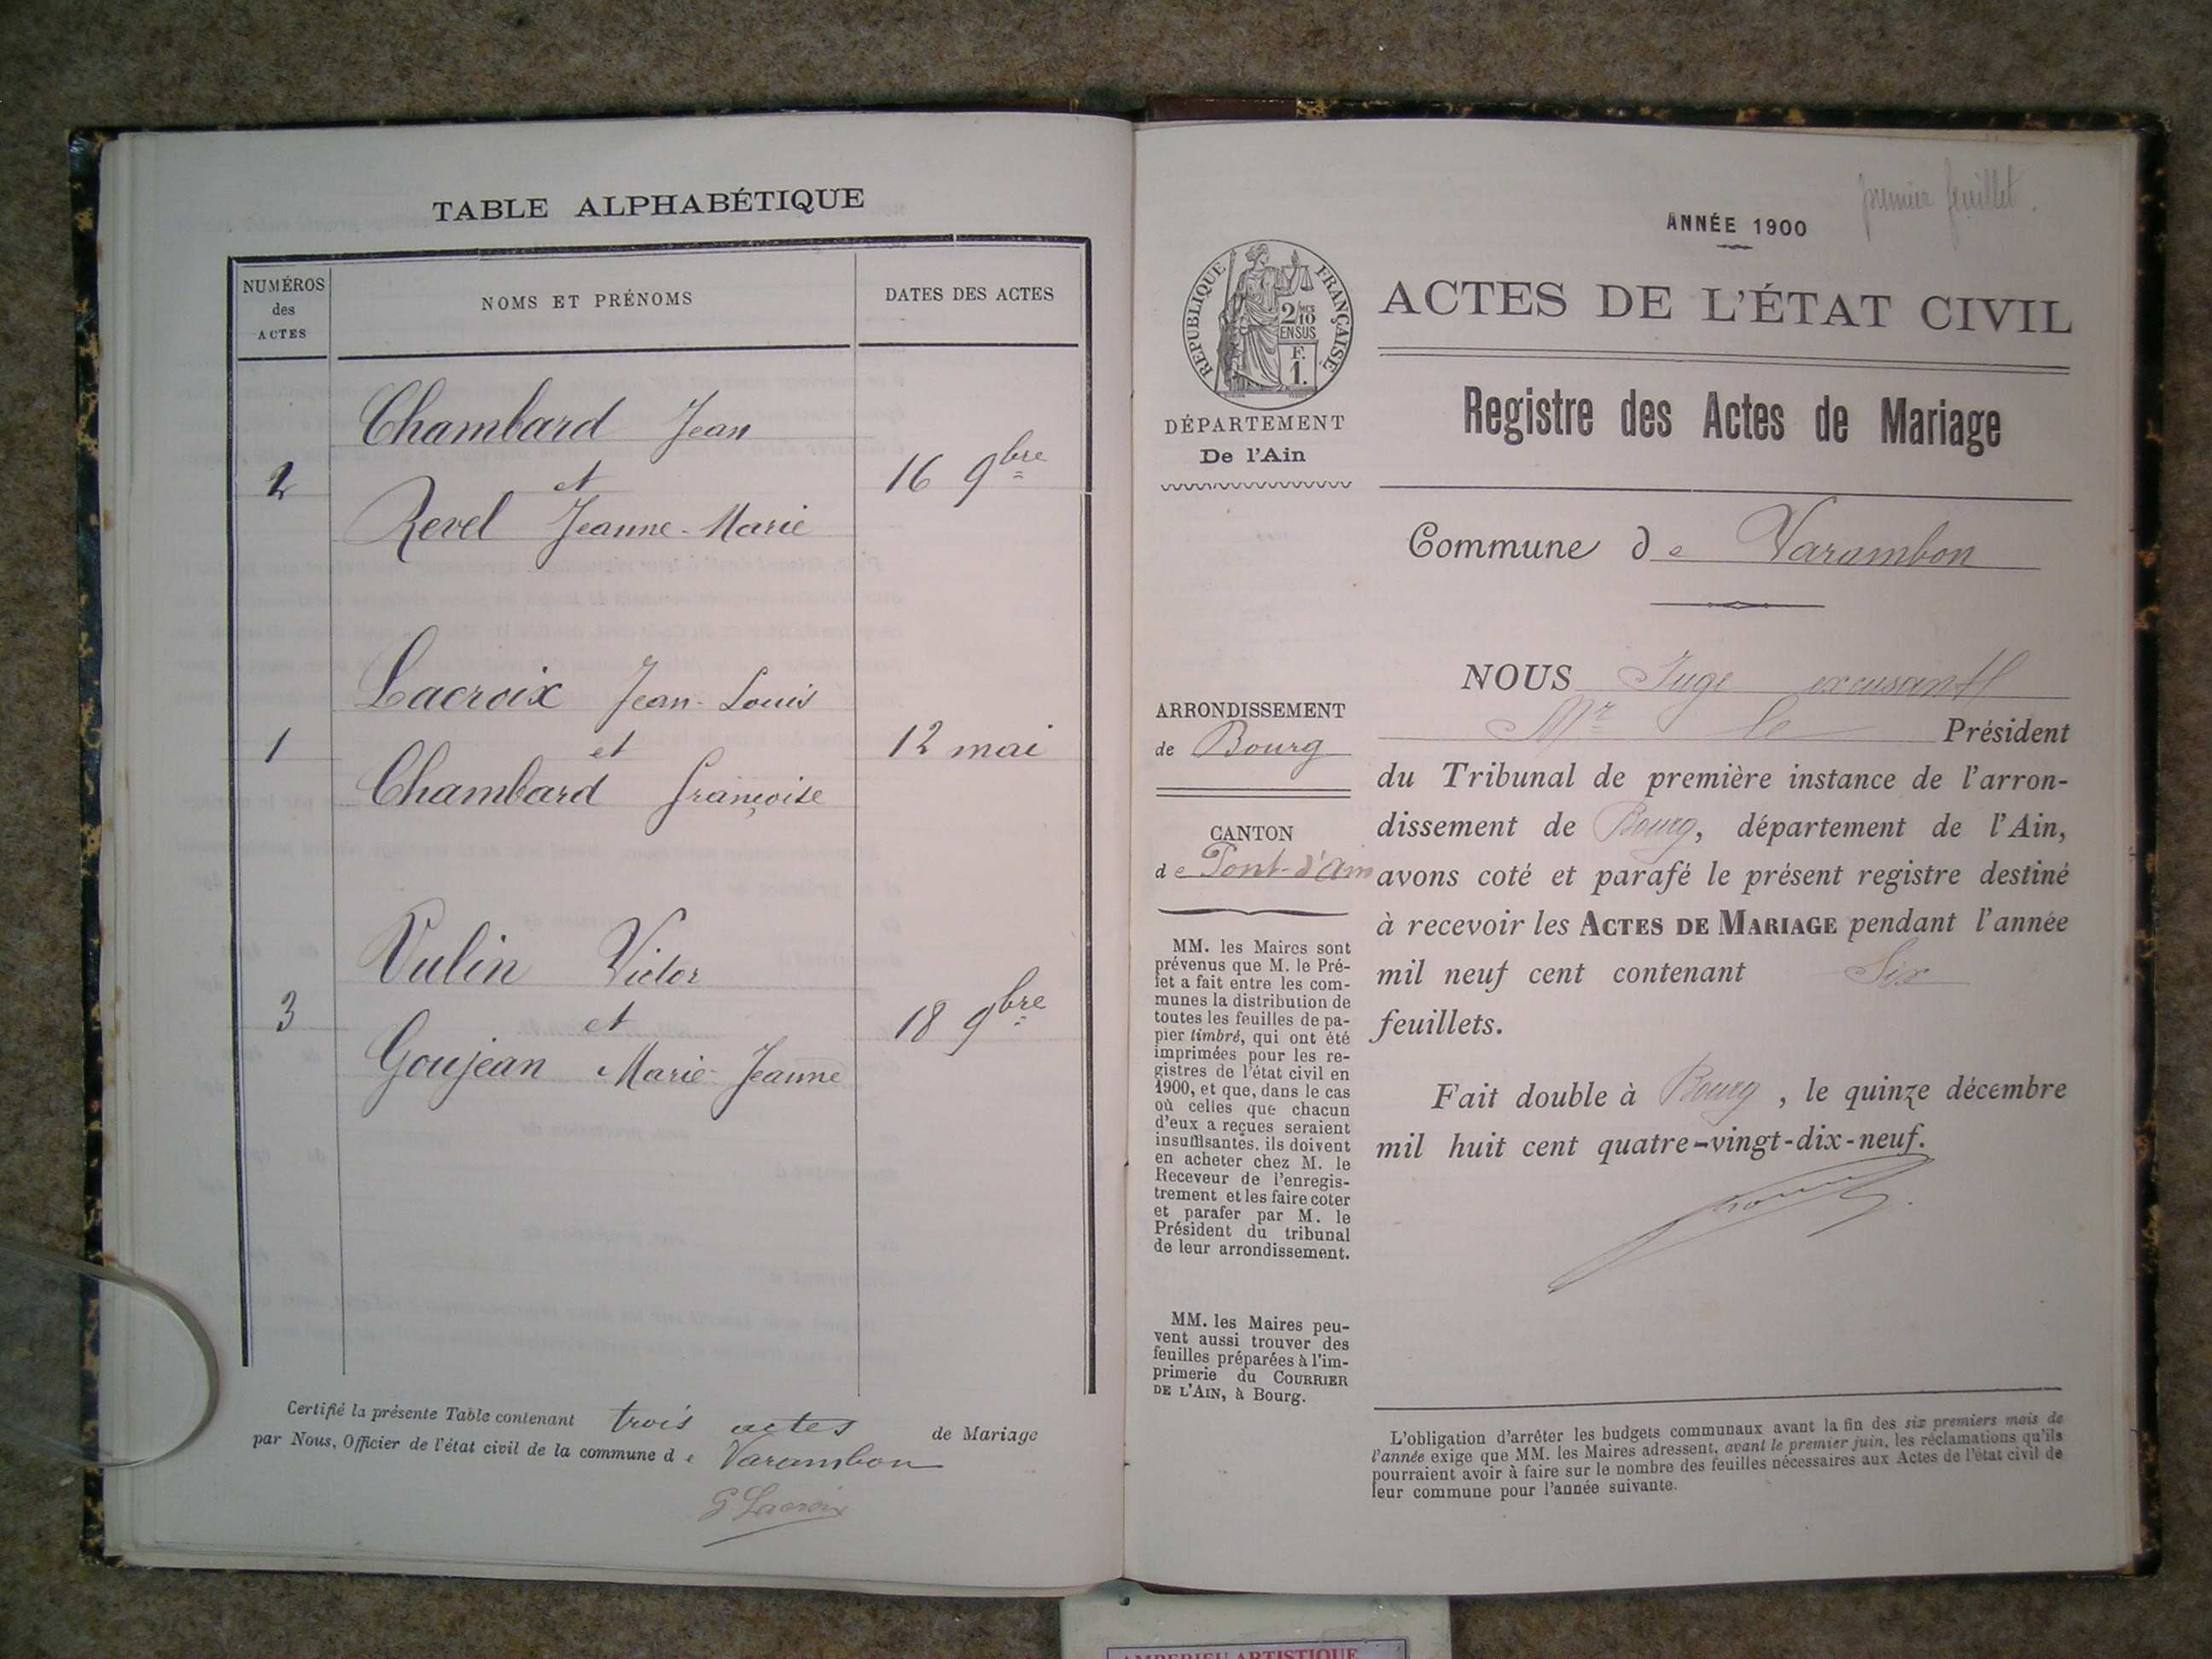 TABLE ALPHABÉTIQUE
NUMÉROS
des
ACTES
NOMS ET PRÉNOMS
DATES DES ACTES
Chambard Jean
2 et 16 9bre
Revel Jeanne-Marie
Lacroix Jean-Louis
1 et 12 mai
Chambard Françoise
Vulin Victor
3 et 18 9bre
Goujean Marie-Jeanne
Certifié la présente Table contenant trois actes de Mariage
par Nous, Officier de l'état civil de la commune de Varambon
G Lacroix
premier feuillet.
ANNÉE 1900
RÉPUBLIQUE FRANÇAISE
2/10
EN SUS
F.
1.
DÉPARTEMENT
De l'Ain
ARRONDISSEMENT
de Bourg
CANTON
de Pont-d'Ain
MM. les Maires sont
prévenus que M. le Pré-
fet a fait entre les com-
munes la distribution de
toutes les feuilles de pa-
pier timbré, qui ont été
imprimées pour les re-
gistres de l'état civil en
1900, et que, dans le cas
où celles que chacun
d'eux a reçues seraient
insuffisantes, ils doivent
en acheter chez M. le
Receveur de l'enregis-
trement et les faire coter
et parafer par M. le
Président du tribunal
de leur arrondissement.
MM. les Maires peu-
vent aussi trouver des
feuilles préparées à l'im-
primerie du COURRIER
DE L'AIN, à Bourg.
ACTES DE L'ÉTAT CIVIL
Registre des Actes de Mariage
Commune de Varambon
NOUS Juge
Mr le Président
du Tribunal de première instance de l'arron-
dissement de Bourg, département de l'Ain,
avons coté et parafé le présent registre destiné
à recevoir les ACTES DE MARIAGE pendant l'année
mil neuf cent contenant Six
feuillets.
Fait double à Bourg, le quinze décembre
mil huit cent quatre-vingt-dix-neuf.
L'obligation d'arrêter les budgets communaux avant la fin des six premiers mois de
l'année exige que MM. les Maires adressent, avant le premier juin, les réclamations qu'ils
pourraient avoir à faire sur le nombre des feuilles nécessaires aux Actes de l'état civil de
leur commune pour l'année suivante.
AMBERIEU ARTISTIQUE